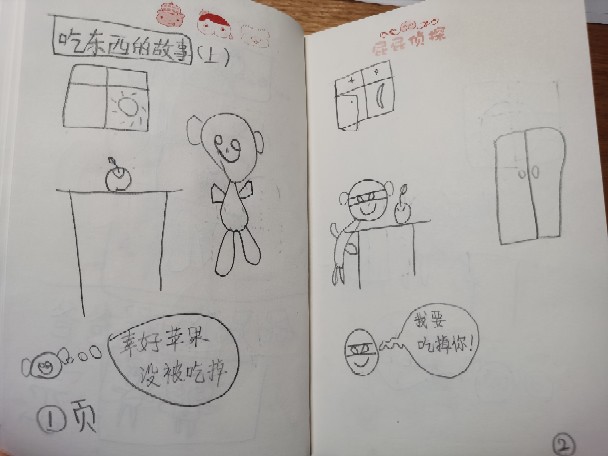 吃东西的故事(上)
幸好苹果
没被吃掉
①页
屁屁侦探
我要
吃掉你!
②